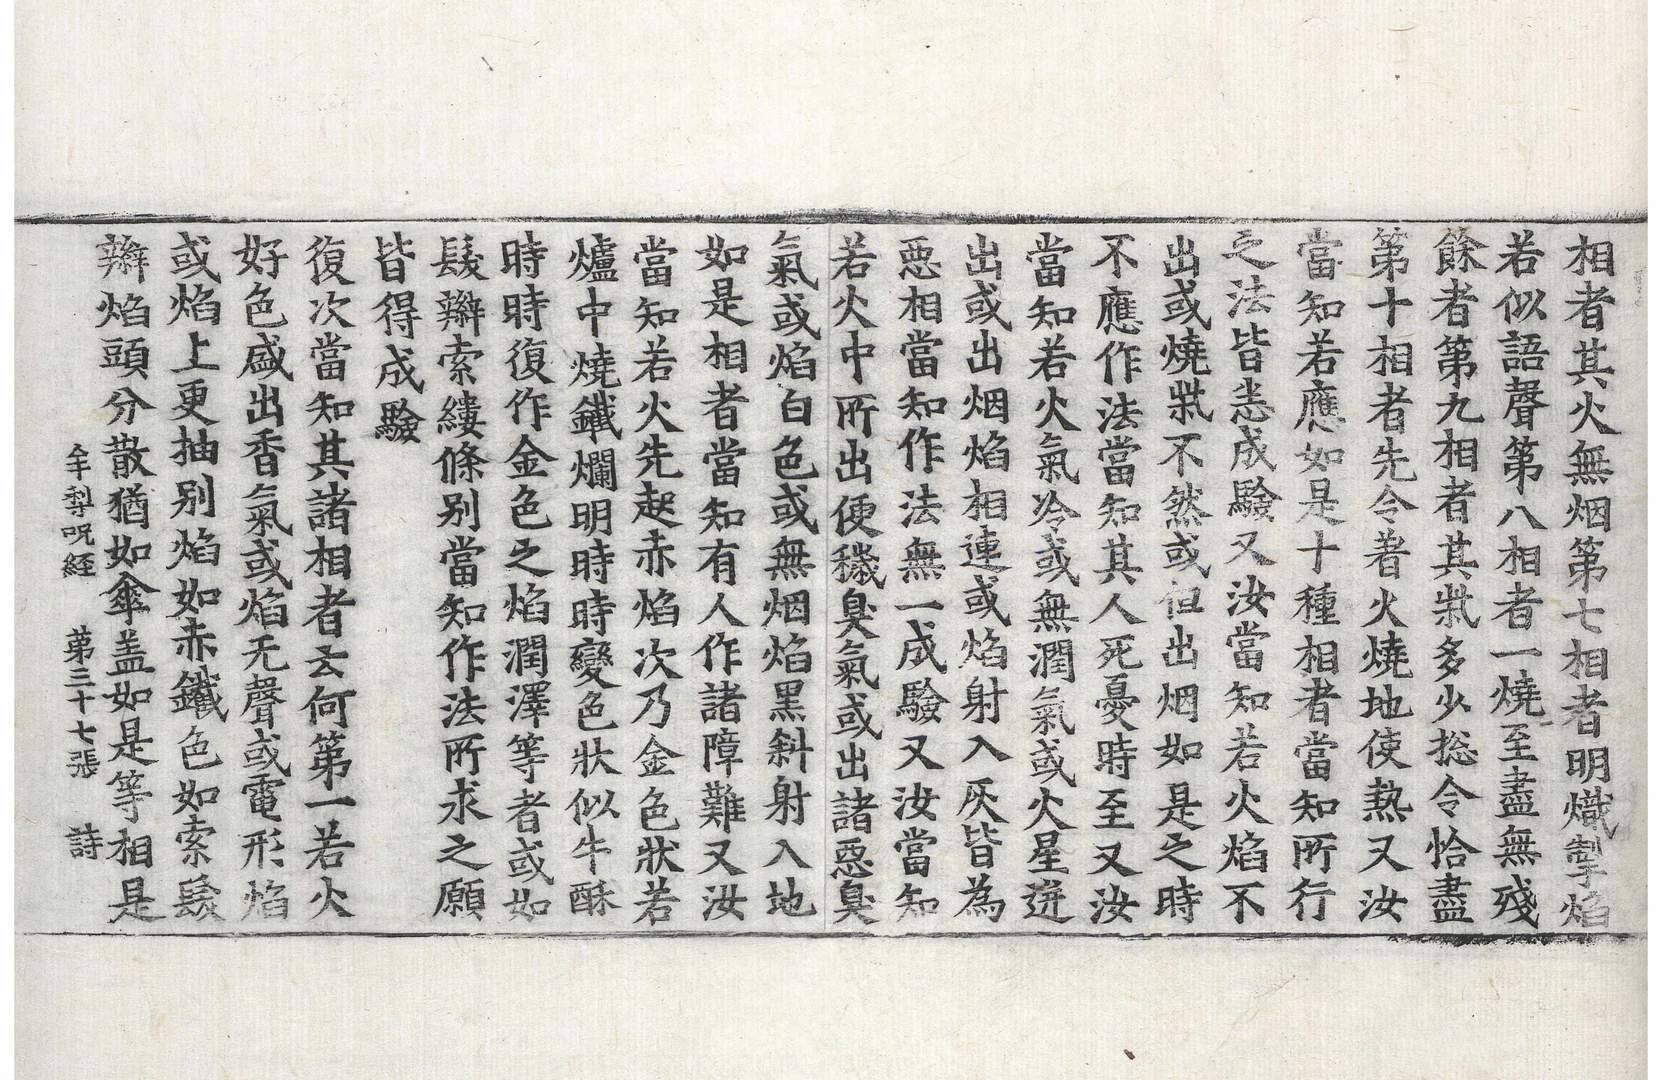 相者其火無烟第七相者明熾掣焰
若似語聲第八相者一燒至盡無殘
餘者第九相者其柴多少捴令恰盡
第十相者先令著火燒地使熱又汝
當知若應如是十種相者當知所行
之法皆悉成驗又汝當知若火焰不
出或燒柴不然或但出烟如是之時
不應作法當知其人死憂時至又汝
當知若火氣冷或無潤氣或火星迸
出或出烟焰相連或焰射入灰皆為
惡相當知作法無一成驗又汝當知
若火中所出便穢臭氣或出諸惡臭
氣或焰白色或無烟焰黑斜射入地
如是相者當知有人作諸障難又汝
當知若火先起赤焰次乃金色狀若
爐中燒鐵爛明時時變色狀似牛酥
時時復作金色之焰潤澤等者或如
鬘辮索縷條別當知作法所求之願
皆得成驗
復次當知其諸相者云何第一若火
好色盛出香氣或焰无聲或電形焰
或焰上更抽別焰如赤鐵色如索鬘
辮焰頭分散猶如傘盖如是等相是
牟梨呪経　第三十七張　詩